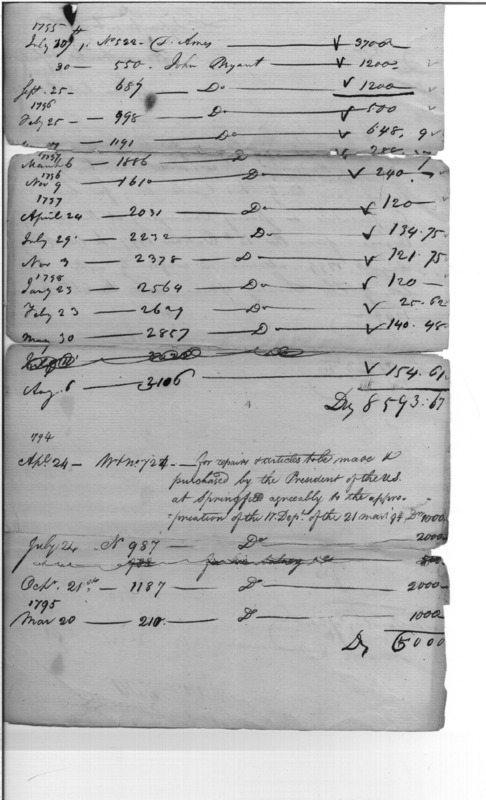 1795
July 30th, No 522 - D. Ames — ✓ 3700
30 — 550. John Bryant — ✓ 1200
Sept. 25 - 687 — Do — ✓ 1200
1796
Feby 25 - 998 — Do — ✓ 500
1191 — Do — ✓ 648. 9
1797
March 6 — 1886 — D — ✓ 280
1796
Nov 9 — 1610 — Do — ✓ 240. —
1797
April 24 — 2031 — Do — ✓ 120 —
July 29 — 2232 — Do — ✓ 134.75
Nov 3 — 2378 — Do — ✓ 121.75
1798
Jany 23 — 2564 — Do — ✓ 120 —
Feby 23 — 2629 — Do — ✓ 25.62
May 30 — 2857 — Do — ✓ 140.48
Aug. 6 — 3106 — ✓ 154.61
8593.67
794
Apl. 24 — Wt No 724 — for repairs & articles to be made &
purchased by the President of the U.S.
at Springfield agreeably to the appro-
priation of the Wr Dept. of the 21 mar: 94 Drs 1000
July 24 N 987 — Do — 2000
Octr. 21st — 1187 — Do — 2000
1795
Mar 20 — 210 — Do — 1000
6000